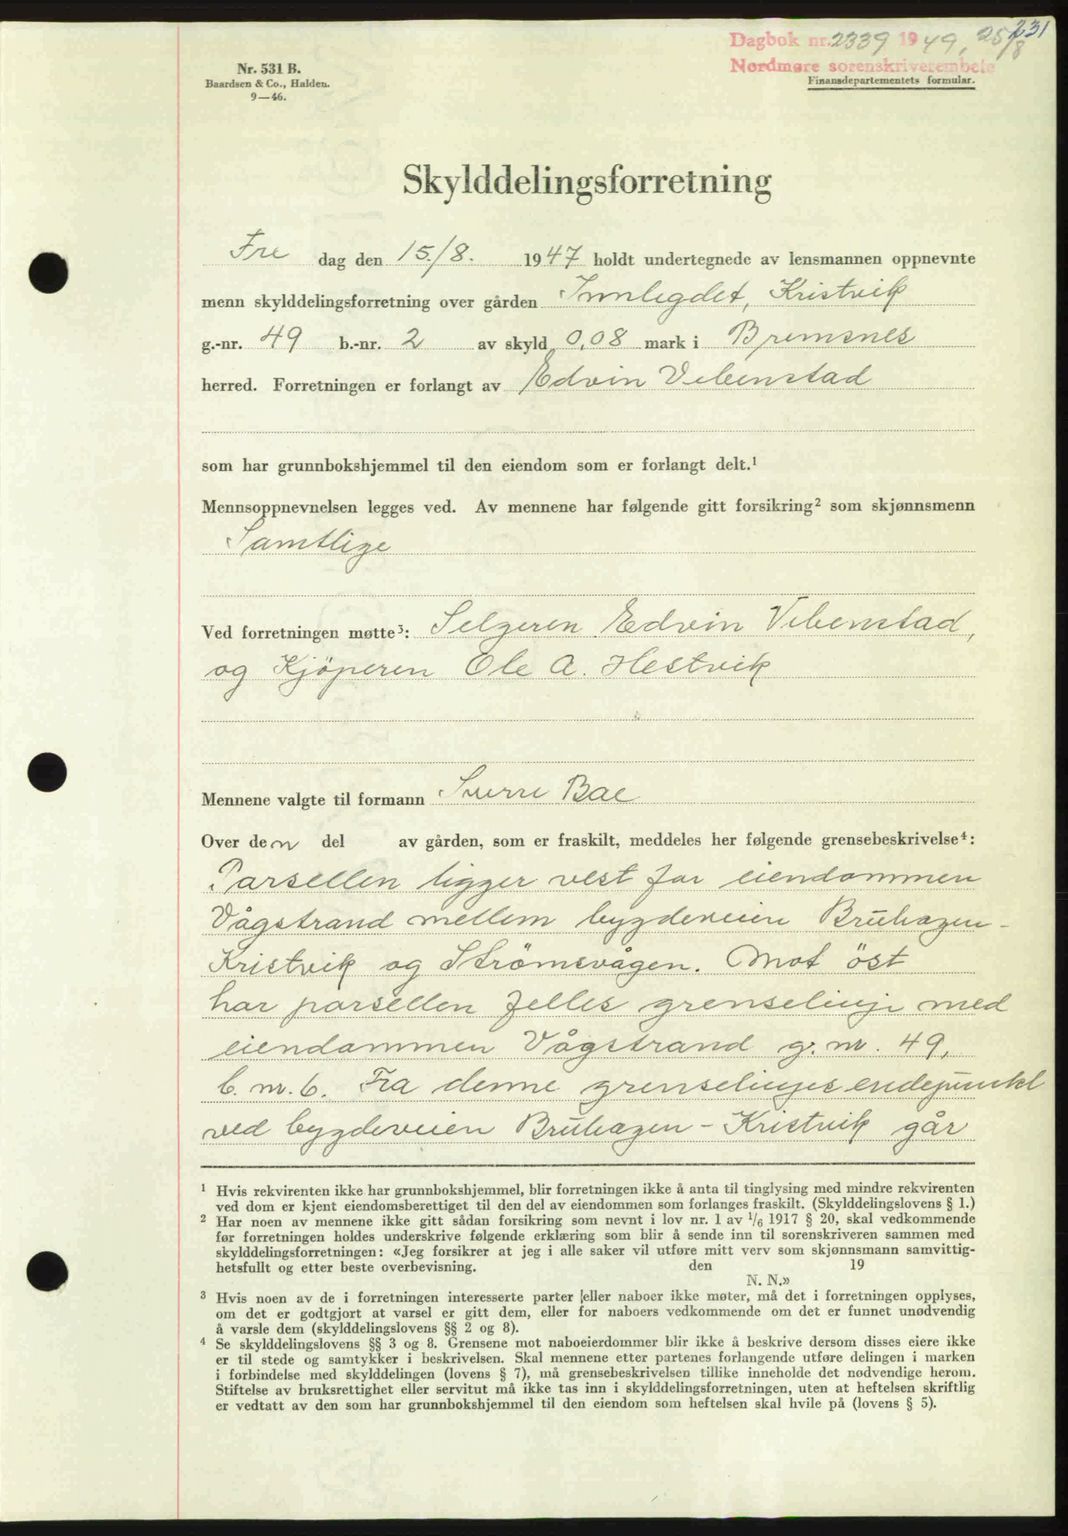 231
Dagbok nr. 2339 1949, 25/8
Nordmøre sorenskriverembete
Nr. 531 B.
Baardsen & Co., Halden.
9—46.
Finansdepartementets formular.
Skylddelingsforretning
Fre dag den 15./8. 1947 holdt undertegnede av lensmannen oppnevnte
menn skylddelingsforretning over gården Innlegdet, Kristvik
g.-nr. 49 b.-nr. 2 av skyld 0,08 mark i Bremsnes
herred. Forretningen er forlangt av Edvin Vebenstad
som har grunnbokshjemmel til den eiendom som er forlangt delt.¹
Mennsoppnevnelsen legges ved. Av mennene har følgende gitt forsikring² som skjønnsmenn
Samtlige
Ved forretningen møtte³: Selgeren Edvin Vebenstad,
og Kjöperen Ole A. Hestvik
Mennene valgte til formann Sverre Bae
Over den del av gården, som er fraskilt, meddeles her følgende grensebeskrivelse⁴:
Parsellen ligger vest for eiendommen
Vågstrand mellem bygdeveien Bruhagen-
Kristvik og Strömsvågen. Mot öst
har parsellen felles grenselinje med
eiendommen Vågstrand g. nr. 49,
b. nr. 6. Fra denne grenselinjes endepunkt
ved bygdeveien Bruhagen - Kristvik går
¹ Hvis rekvirenten ikke har grunnbokshjemmel, blir forretningen ikke å anta til tinglysing med mindre rekvirenten
ved dom er kjent eiendomsberettiget til den del av eiendommen som forlanges fraskilt. (Skylddelingslovens § 1.)
² Har noen av mennene ikke gitt sådan forsikring som nevnt i lov nr. 1 av 1/6 1917 § 20, skal vedkommende
før forretningen holdes underskrive følgende erklæring som blir å sende inn til sorenskriveren sammen med
skylddelingsforretningen: «Jeg forsikrer at jeg i alle saker vil utføre mitt verv som skjønnsmann samvittig-
hetsfullt og etter beste overbevisning. den 19
N. N.»
³ Hvis noen av de i forretningen interesserte parter (eller naboer ikke møter, må det i forretningen opplyses,
om det er godtgjort at varsel er gitt dem, eller for naboers vedkommende om det er funnet unødvendig
å varsle dem (skylddelingslovens §§ 2 og 8).
⁴ Se skylddelingslovens §§ 3 og 8. Grensene mot naboeierdommer blir ikke å beskrive dersom disses eiere ikke
er til stede og samtykker i beskrivelsen. Skal mennene etter partenes forlangende utføre delingen i marken
i forbindelse med skylddelingen (lovens § 7), må grensebeskrivelsen tillike inneholde det nødvendige herom.
Stiftelse av bruksrettighet eller servitut må ikke tas inn i skylddelingsforretningen, uten at heftelsen skriftlig
er vedtatt av den som har grunnbokshjemmel til den eiendom som heftelsen skal hvile på (lovens § 5).